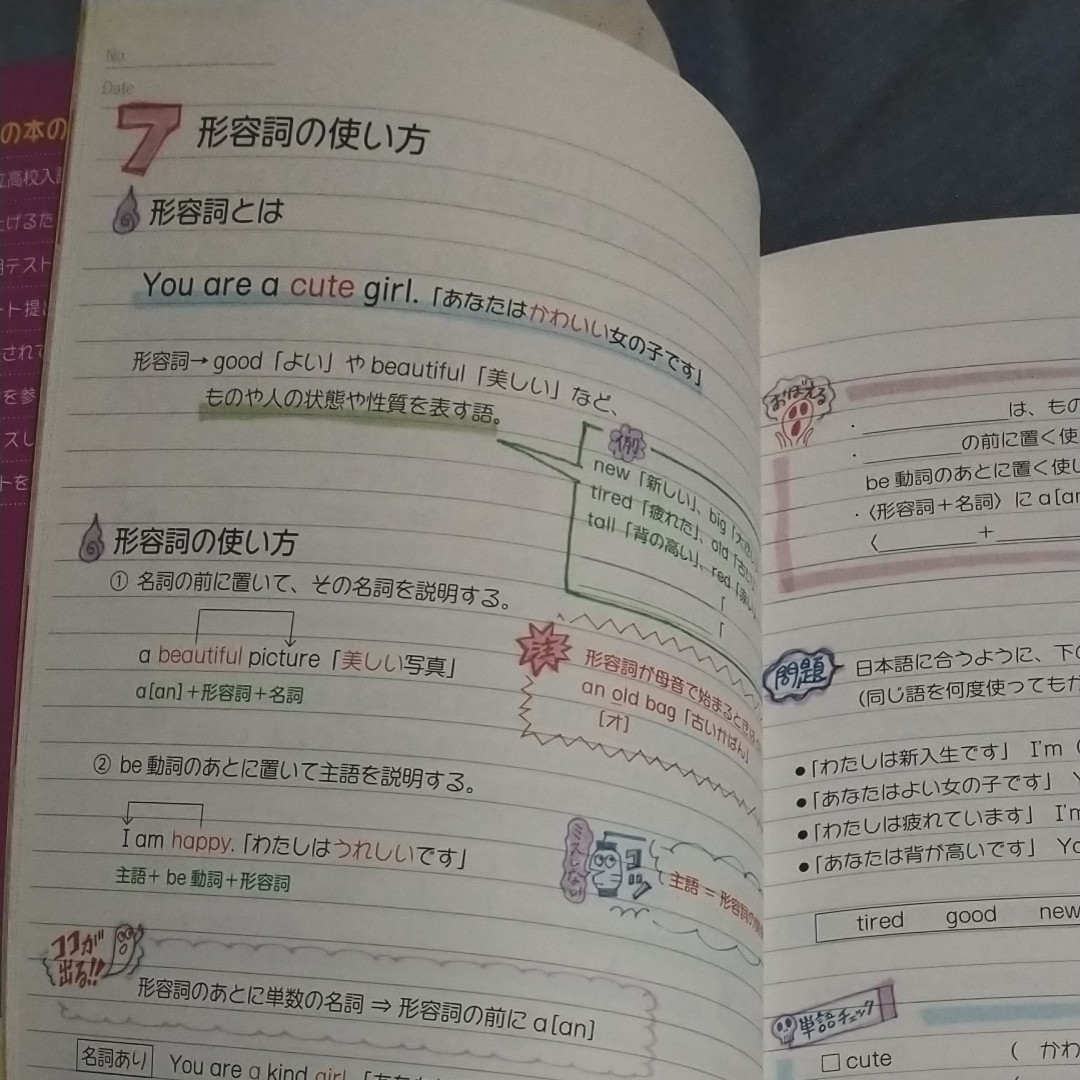 の本の
立高校入
上げるた
テスト
ート提
されて
を参
ズし
トを
No
Date
7 形容詞の使い方
形容詞とは
You are a cute girl.「あなたはかわいい女の子です」
形容詞→good「よい」やbeautiful「美しい」など、
ものや人の状態や性質を表す語。
例
new「新しい」、big「大きい
tired「疲れた」、old「古い
tall「背の高い」、red「赤い
「
「
形容詞の使い方
① 名詞の前に置いて、その名詞を説明する。
a beautiful picture「美しい写真」
a[an]+形容詞+名詞
注
形容詞が母音で始まるときは
an old bag「古いかばん」
[オ]
② be動詞のあとに置いて主語を説明する。
I am happy.「わたしはうれしいです」
主語+be動詞+形容詞
ミスしない
コツ
主語=形容詞の
ココが
出る!!
形容詞のあとに単数の名詞⇒形容詞の前にa[an]
名詞あり You are a kind girl.「あなた
おぼえる
・ は、もの
・ の前に置く使
be動詞のあとに置く使い
・〈形容詞+名詞〉にa[an
〈 +
問題
日本語に合うように、下の
(同じ語を何度使ってもか
●「わたしは新入生です」 I'm (
●「あなたはよい女の子です」 Y
●「わたしは疲れています」 I'm
●「あなたは背が高いです」 Yo
tired good new
単語チェック
□ cute ( かわ